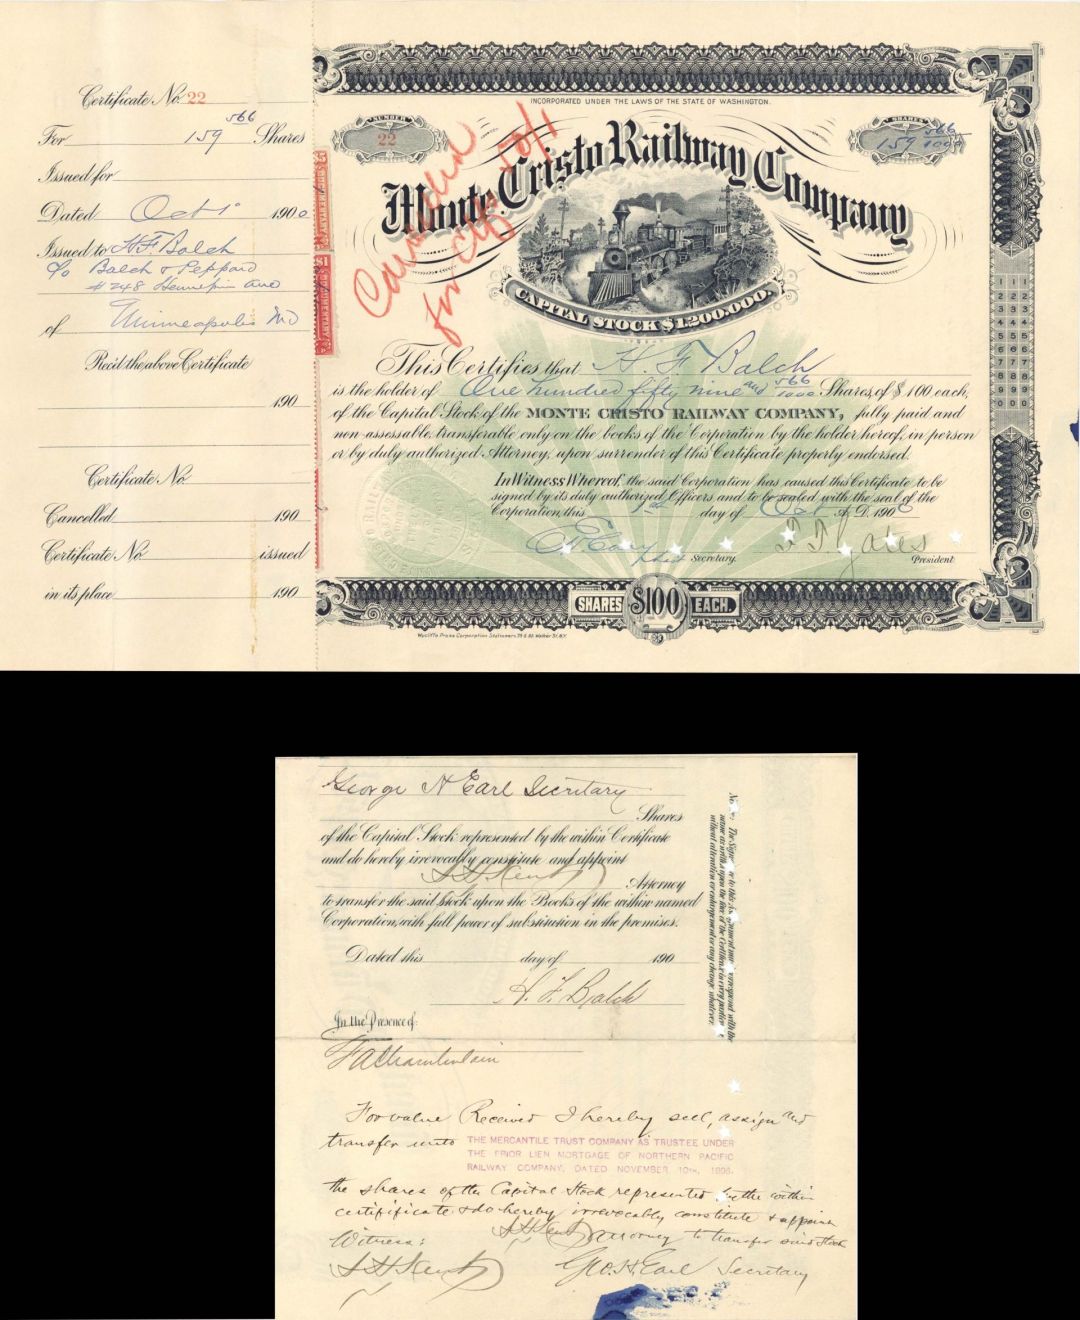 Certificate No. 22
For 159 566 Shares
Issued for
Dated Oct 1° 1900
Issued to H F Balch
c/o Balch & Peppard
#248 Hennepin Ave
of Minneapolis
Rec'd the above Certificate
190
Certificate No
Cancelled 190
Certificate No issued
in its place 190
DOCUMENTARY
DOCUMENTARY
INCORPORATED UNDER THE LAWS OF THE STATE OF WASHINGTON.
NUMBER
22
SHARES
159 566/1000
Monte Cristo Railway Company
Cancelled
CAPITAL STOCK $1,200,000.
This Certifies that H. F. Balch
is the holder of One hundred fifty nine and 566/1000 Shares, of $100 each,
of the Capital Stock of the MONTE CRISTO RAILWAY COMPANY, fully paid and
non-assessable, transferable only on the books of the Corporation by the holder hereof, in person
or by duly authorized Attorney, upon surrender of this Certificate properly endorsed.
In Witness Whereof, the said Corporation has caused this Certificate to be
signed by its duly authorized Officers and to be sealed with the seal of the
Corporation, this 1st day of Oct A.D. 1900
Secretary.
President.
SHARES $100 EACH.
Wycliffe Press Corporation Stationers
1 1 1 1
2 2 2 2
3 3 3 3
4 4 4 4
5 5 5 5
6 6 6 6
7 7 7 7
8 8 8 8
9 9 9 9
0 0 0 0
George H Earl Secretary
Shares
of the Capital Stock represented by the within Certificate
and do hereby irrevocably constitute and appoint
Attorney
to transfer the said Stock upon the Books of the within named
Corporation, with full power of substitution in the premises.
Dated this day of 190
H. F. Balch
In the Presence of:
F A Chamberlain
For value Received I hereby sell, assign and
transfer unto THE MERCANTILE TRUST COMPANY AS TRUSTEE UNDER
THE PRIOR LIEN MORTGAGE OF NORTHERN PACIFIC
RAILWAY COMPANY, DATED NOVEMBER 10TH, 1896.
the shares of the Capital Stock represented by the within
certificate & do hereby irrevocably constitute & appoint
attorney to transfer said stock
Witness:
Geo. H. Earl Secretary